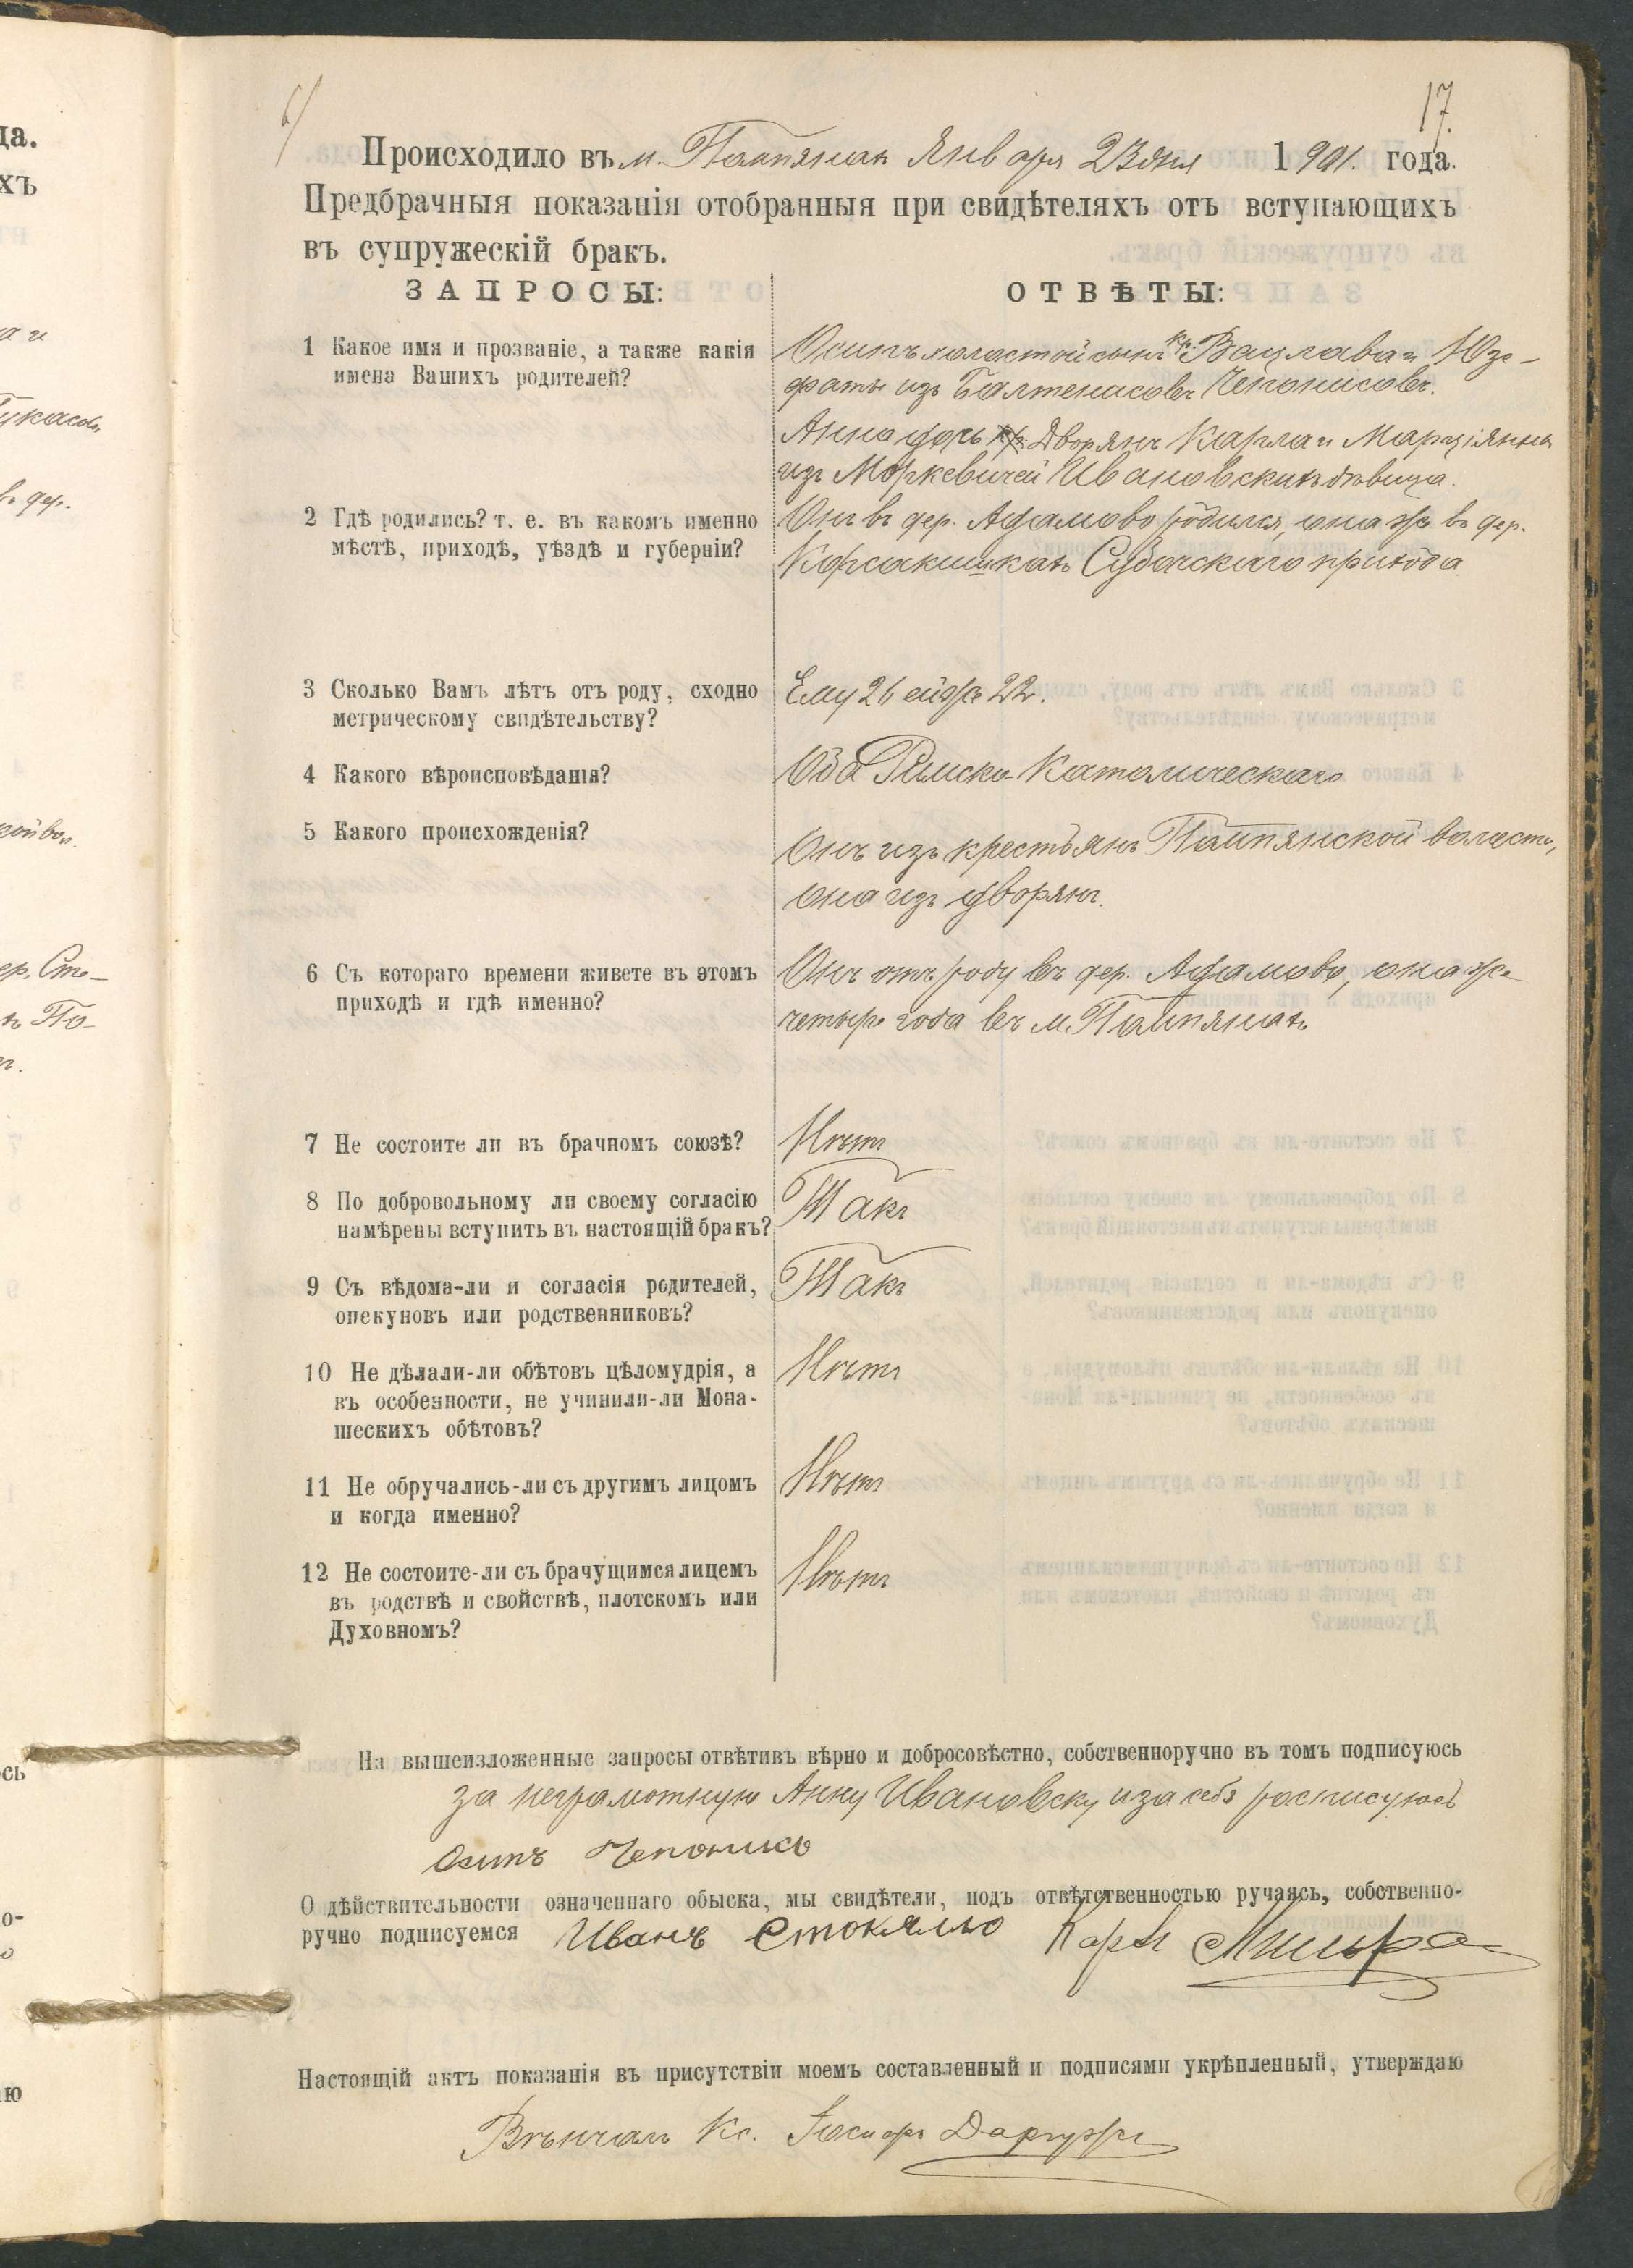 6/
17.
Происходило въ м. Помпянахъ Января 23 дня 1901. года.
Предбрачныя показанія отобранныя при свидѣтеляхъ отъ вступающихъ
въ супружескій бракъ.
ЗАПРОСЫ:
ОТВѢТЫ:
1 Какое имя и прозваніе, а также какія
имена Вашихъ родителей?
Осипъ холостой сынъ кр. Вацлава и Юзе-
фаты изъ Балтенасовъ Чепонисовъ.
Анна дочь Дворянъ Карла и Марціянны
изъ Моркевичей Ивановскихъ дѣвица.
2 Гдѣ родились? т. е. въ какомъ именно
мѣстѣ, приходѣ, уѣздѣ и губерніи?
Онъ въ дер. Адамово родился, она же въ дер.
Корсакишкахъ Субочскаго прихода
3 Сколько Вамъ лѣтъ отъ роду, сходно
метрическому свидѣтельству?
Ему 26 ей же 22.
4 Какого вѣроисповѣданія?
Оба Римско-Католическаго
5 Какого происхожденія?
Онъ изъ крестьянъ Помпянской волости,
она изъ дворянъ.
6 Съ котораго времени живете въ этомъ
приходѣ и гдѣ именно?
Онъ отъ роду въ дер. Адамово, она же
четыре года въ м. Помпянахъ
7 Не состоите ли въ брачномъ союзѣ?
Нѣтъ
8 По добровольному ли своему согласію
намѣрены вступить въ настоящій бракъ?
Такъ
9 Съ вѣдома-ли и согласія родителей,
опекуновъ или родственниковъ?
Такъ
10 Не дѣлали-ли обѣтовъ цѣломудрія, а
въ особенности, не учинили-ли Мона-
шескихъ обѣтовъ?
Нѣтъ
11 Не обручались-ли съ другимъ лицомъ
и когда именно?
Нѣтъ
12 Не состоите-ли съ брачущимся лицемъ
въ родствѣ и свойствѣ, плотскомъ или
Духовномъ?
Нѣтъ
На вышеизложенные запросы отвѣтивъ вѣрно и добросовѣстно, собственноручно въ томъ подписуюсь
за неграмотную Анну Ивановску и за себя росписуюсь
Осипъ Чепонисъ
О дѣйствительности означеннаго обыска, мы свидѣтели, подъ отвѣтственностью ручаясь, собственно-
ручно подписуемся Иванъ Стокялло Карл
Настоящій актъ показанія въ присутствіи моемъ составленный и подписями укрѣпленный, утверждаю
Вѣнчалъ Кс. Іосифъ